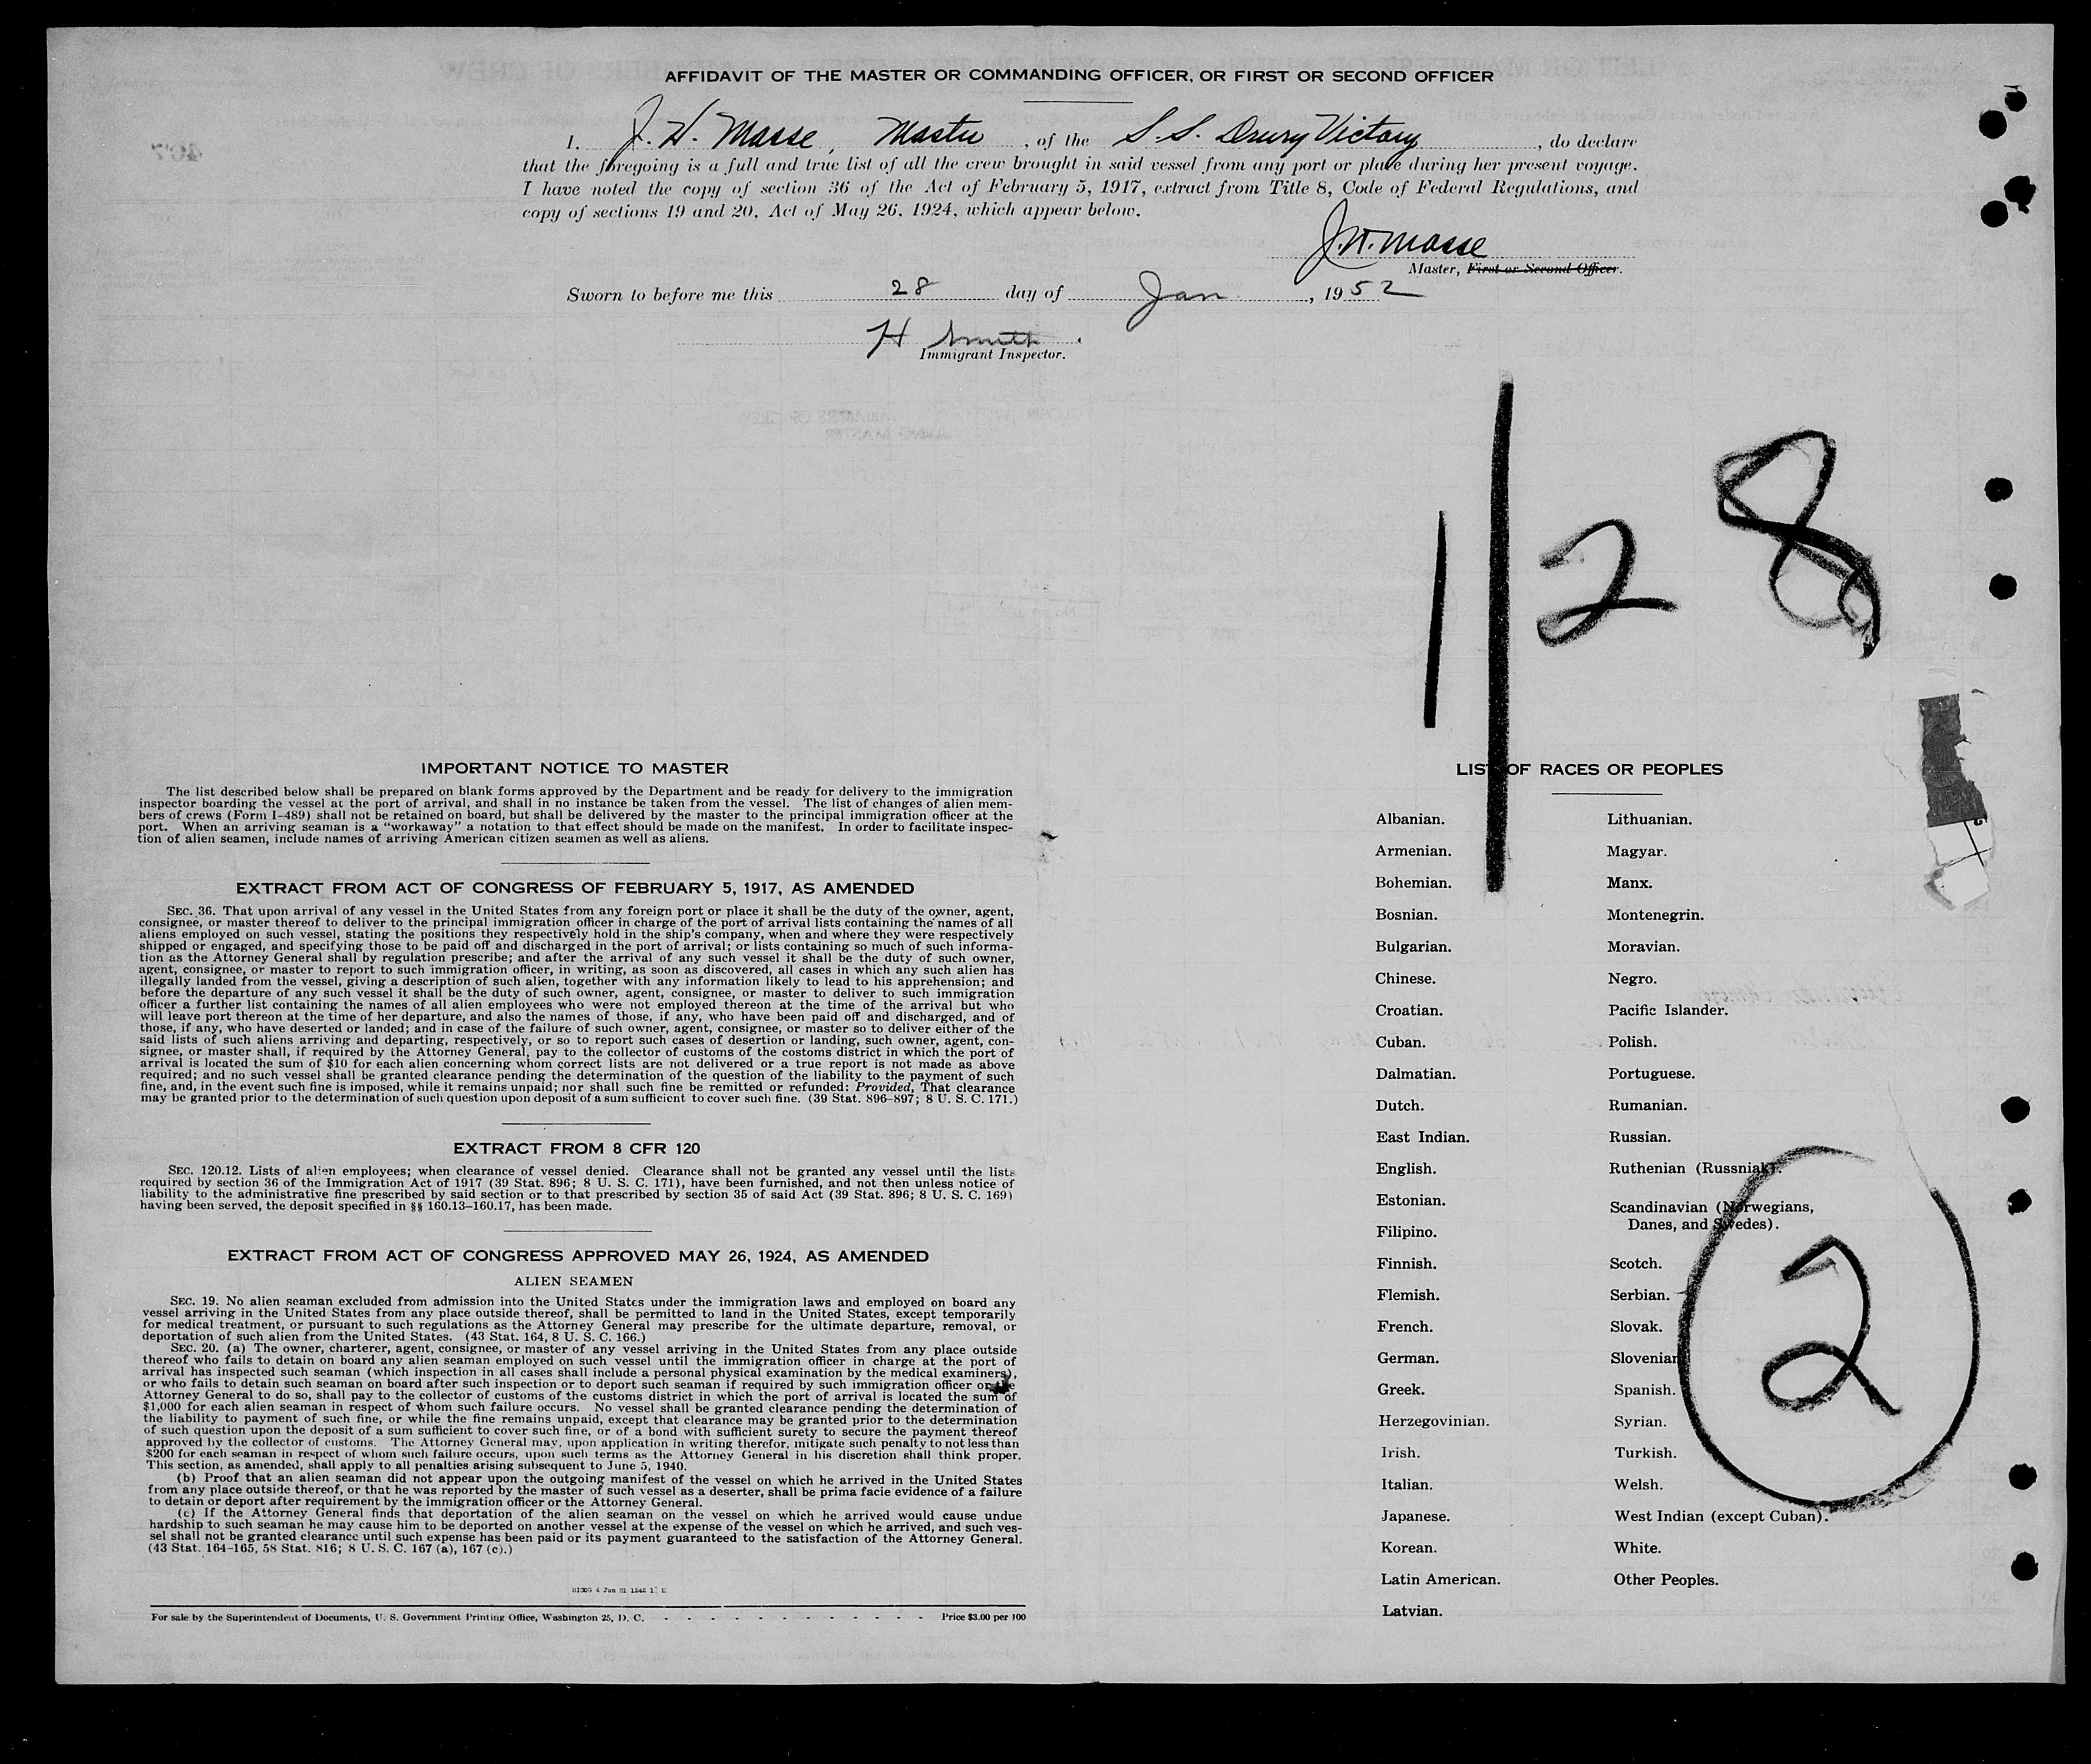 AFFIDAVIT OF THE MASTER OR COMMANDING OFFICER, OR FIRST OR SECOND OFFICER
I, J. W. Masse, Master, of the S.S. Drury Victory, do declare
that the foregoing is a full and true list of all the crew brought in said vessel from any port or place during her present voyage.
I have noted the copy of section 36 of the Act of February 5, 1917, extract from Title 8, Code of Federal Regulations, and
copy of sections 19 and 20, Act of May 26, 1924, which appear below.
J.W. Masse
Master, First or Second Officer.
Sworn to before me this 28 day of Jan., 1952
H Smith
Immigrant Inspector.
1/28
IMPORTANT NOTICE TO MASTER
The list described below shall be prepared on blank forms approved by the Department and be ready for delivery to the immigration
inspector boarding the vessel at the port of arrival, and shall in no instance be taken from the vessel. The list of changes of alien mem-
bers of crews (Form I-489) shall not be retained on board, but shall be delivered by the master to the principal immigration officer at the
port. When an arriving seaman is a "workaway" a notation to that effect should be made on the manifest. In order to facilitate inspec-
tion of alien seamen, include names of arriving American citizen seamen as well as aliens.
EXTRACT FROM ACT OF CONGRESS OF FEBRUARY 5, 1917, AS AMENDED
SEC. 36. That upon arrival of any vessel in the United States from any foreign port or place it shall be the duty of the owner, agent,
consignee, or master thereof to deliver to the principal immigration officer in charge of the port of arrival lists containing the names of all
aliens employed on such vessel, stating the positions they respectively hold in the ship's company, when and where they were respectively
shipped or engaged, and specifying those to be paid off and discharged in the port of arrival; or lists containing so much of such informa-
tion as the Attorney General shall by regulation prescribe; and after the arrival of any such vessel it shall be the duty of such owner,
agent, consignee, or master to report to such immigration officer, in writing, as soon as discovered, all cases in which any such alien has
illegally landed from the vessel, giving a description of such alien, together with any information likely to lead to his apprehension; and
before the departure of any such vessel it shall be the duty of such owner, agent, consignee, or master to deliver to such immigration
officer a further list containing the names of all alien employees who were not employed thereon at the time of the arrival but who
will leave port thereon at the time of her departure, and also the names of those, if any, who have been paid off and discharged, and of
those, if any, who have deserted or landed; and in case of the failure of such owner, agent, consignee, or master so to deliver either of the
said lists of such aliens arriving and departing, respectively, or so to report such cases of desertion or landing, such owner, agent, con-
signee, or master shall, if required by the Attorney General, pay to the collector of customs of the costoms district in which the port of
arrival is located the sum of $10 for each alien concerning whom correct lists are not delivered or a true report is not made as above
required; and no such vessel shall be granted clearance pending the determination of the question of the liability to the payment of such
fine, and, in the event such fine is imposed, while it remains unpaid; nor shall such fine be remitted or refunded: Provided, That clearance
may be granted prior to the determination of such question upon deposit of a sum sufficient to cover such fine. (39 Stat. 896-897; 8 U. S. C. 171.)
EXTRACT FROM 8 CFR 120
SEC. 120.12. Lists of alien employees; when clearance of vessel denied. Clearance shall not be granted any vessel until the lists
required by section 36 of the Immigration Act of 1917 (39 Stat. 896; 8 U. S. C. 171), have been furnished, and not then unless notice of
liability to the administrative fine prescribed by said section or to that prescribed by section 35 of said Act (39 Stat. 896; 8 U. S. C. 169)
having been served, the deposit specified in §§ 160.13-160.17, has been made.
EXTRACT FROM ACT OF CONGRESS APPROVED MAY 26, 1924, AS AMENDED
ALIEN SEAMEN
SEC. 19. No alien seaman excluded from admission into the United States under the immigration laws and employed on board any
vessel arriving in the United States from any place outside thereof, shall be permitted to land in the United States, except temporarily
for medical treatment, or pursuant to such regulations as the Attorney General may prescribe for the ultimate departure, removal, or
deportation of such alien from the United States. (43 Stat. 164, 8 U. S. C. 166.)
SEC. 20. (a) The owner, charterer, agent, consignee, or master of any vessel arriving in the United States from any place outside
thereof who fails to detain on board any alien seaman employed on such vessel until the immigration officer in charge at the port of
arrival has inspected such seaman (which inspection in all cases shall include a personal physical examination by the medical examiners),
or who fails to detain such seaman on board after such inspection or to deport such seaman if required by such immigration officer or the
Attorney General to do so, shall pay to the collector of customs of the customs district in which the port of arrival is located the sum of
$1,000 for each alien seaman in respect of whom such failure occurs. No vessel shall be granted clearance pending the determination of
the liability to payment of such fine, or while the fine remains unpaid, except that clearance may be granted prior to the determination
of such question upon the deposit of a sum sufficient to cover such fine, or of a bond with sufficient surety to secure the payment thereof
approved by the collector of customs. The Attorney General may, upon application in writing therefor, mitigate such penalty to not less than
$200 for each seaman in respect of whom such failure occurs, upon such terms as the Attorney General in his discretion shall think proper.
This section, as amended, shall apply to all penalties arising subsequent to June 5, 1940.
(b) Proof that an alien seaman did not appear upon the outgoing manifest of the vessel on which he arrived in the United States
from any place outside thereof, or that he was reported by the master of such vessel as a deserter, shall be prima facie evidence of a failure
to detain or deport after requirement by the immigration officer or the Attorney General.
(c) If the Attorney General finds that deportation of the alien seaman on the vessel on which he arrived would cause undue
hardship to such seaman he may cause him to be deported on another vessel at the expense of the vessel on which he arrived, and such ves-
sel shall not be granted clearance until such expense has been paid or its payment guaranteed to the satisfaction of the Attorney General.
(43 Stat. 164-165, 58 Stat. 816; 8 U. S. C. 167 (a), 167 (c).)
For sale by the Superintendent of Documents, U. S. Government Printing Office, Washington 25, D. C. - - - - - - - - - - - - Price $3.00 per 100
LIST OF RACES OR PEOPLES
Albanian.
Armenian.
Bohemian.
Bosnian.
Bulgarian.
Chinese.
Croatian.
Cuban.
Dalmatian.
Dutch.
East Indian.
English.
Estonian.
Filipino.
Finnish.
Flemish.
French.
German.
Greek.
Herzegovinian.
Irish.
Italian.
Japanese.
Korean.
Latin American.
Latvian.
Lithuanian.
Magyar.
Manx.
Montenegrin.
Moravian.
Negro.
Pacific Islander.
Polish.
Portuguese.
Rumanian.
Russian.
Ruthenian (Russniak).
Scandinavian (Norwegians,
Danes, and Swedes).
Scotch.
Serbian.
Slovak.
Slovenian
Spanish.
Syrian.
Turkish.
Welsh.
West Indian (except Cuban).
White.
Other Peoples.
2